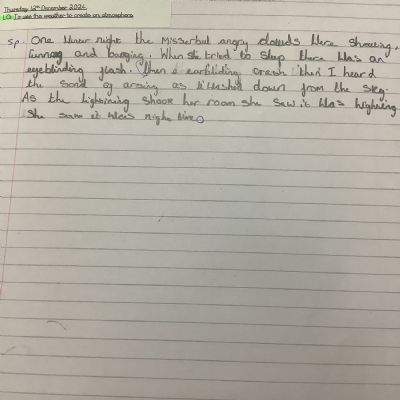 Thursday 12th December 2024
LO: To use the weather to create an atmosphere.
Sp. One night the Misserbul angry clouds Here shouting,
and banging. When she tried to Sleep there Was an
eyeblinding flash. then a earfliding crash then I heard
the Sond of arsing as it lushed down from the sky.
As the lightaining Shook her room She Saw it Was highning
She saw it Was night time